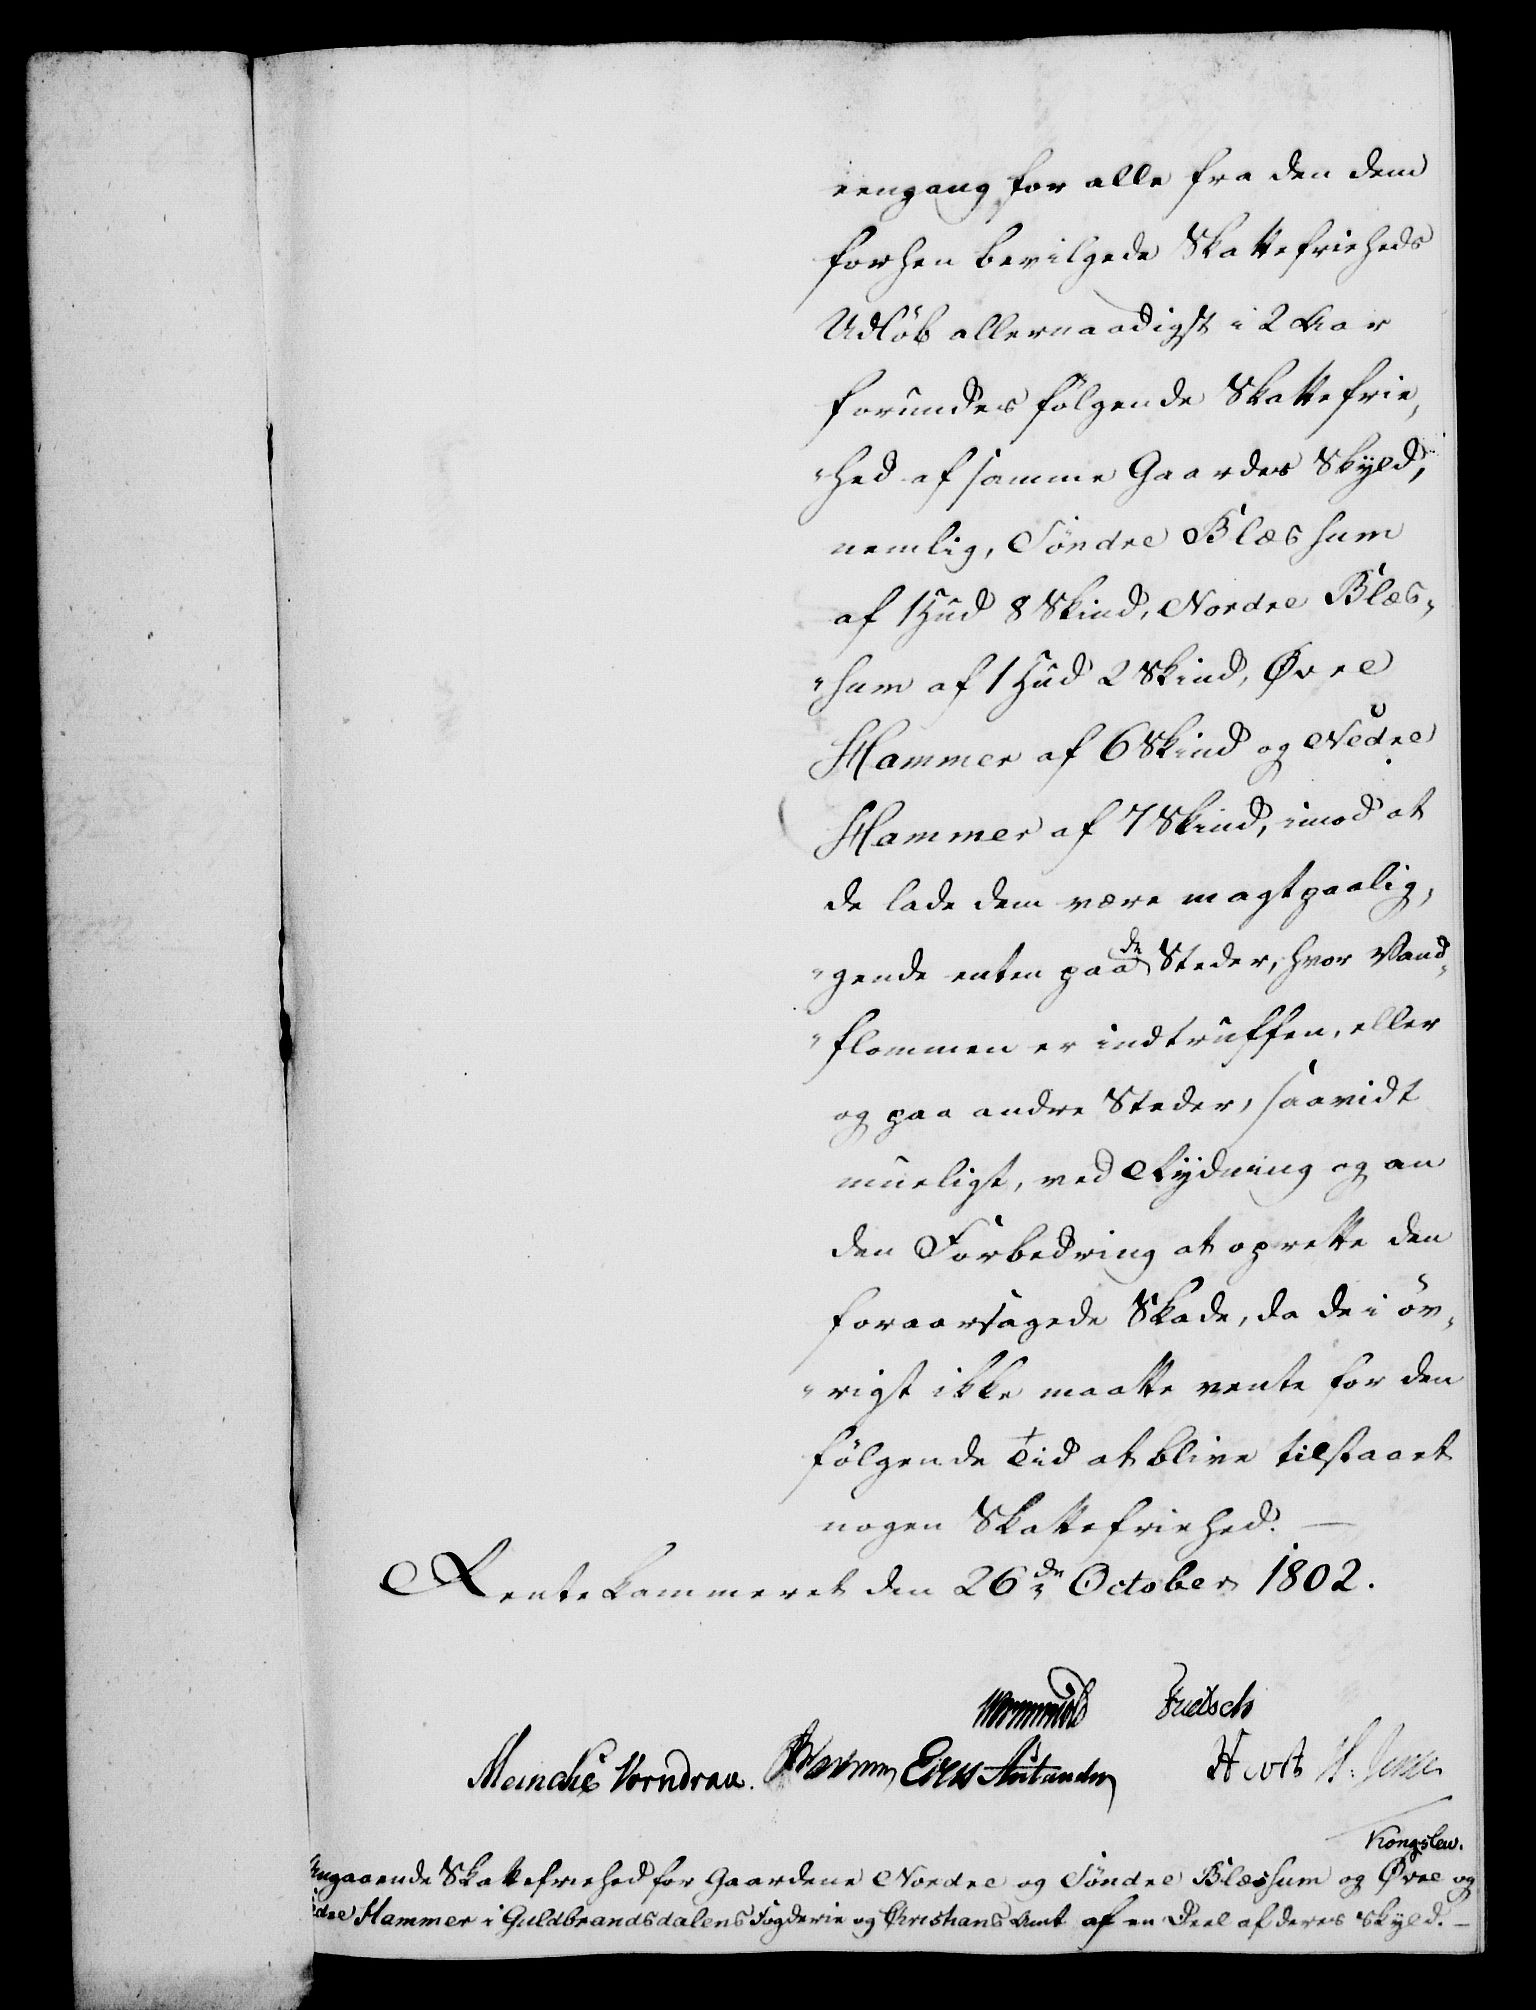 eengang for alle fra den dem
forhen bevilgede Skattefrieheds
Udløb allernaadigst i 2 Aar
forundes følgende Skattefrie,
"hed af samme Gaardes Skyld,
nemlig, Søndre Blæshum
af 1 Hud 8 Skind, Nordre Blæs,
"hum af 1 Hud 2 Skind, Øvre
Hammer af 6 Skind og Nedre
Hammer af 7 Skind, imod at
de lade dem være magtpaalig,
"gende enten paa de Steder, hvor Vand,
"flommen er indtruffen, eller
og paa andre Steder, saavidt
mueligt, ved Rydning og an
den Forbedring at oprette den
foraarsagede Skade, da de i øv,
"rigt ikke maatte vente for den
følgende Tid at blive tilstaaet
nogen Skattefriehed. —
Rentekammeret den 26de October 1802.
Wormskiold
Meinche Vorndran. Eeg
Kongslew.
Angaaende Skattefriehed for Gaardene Nordre og Søndre Blæshum og Øvre og
dre Hammer i Guldbrandsdalens Fogderie og Christians Amt af en Deel af deres Skyld. —